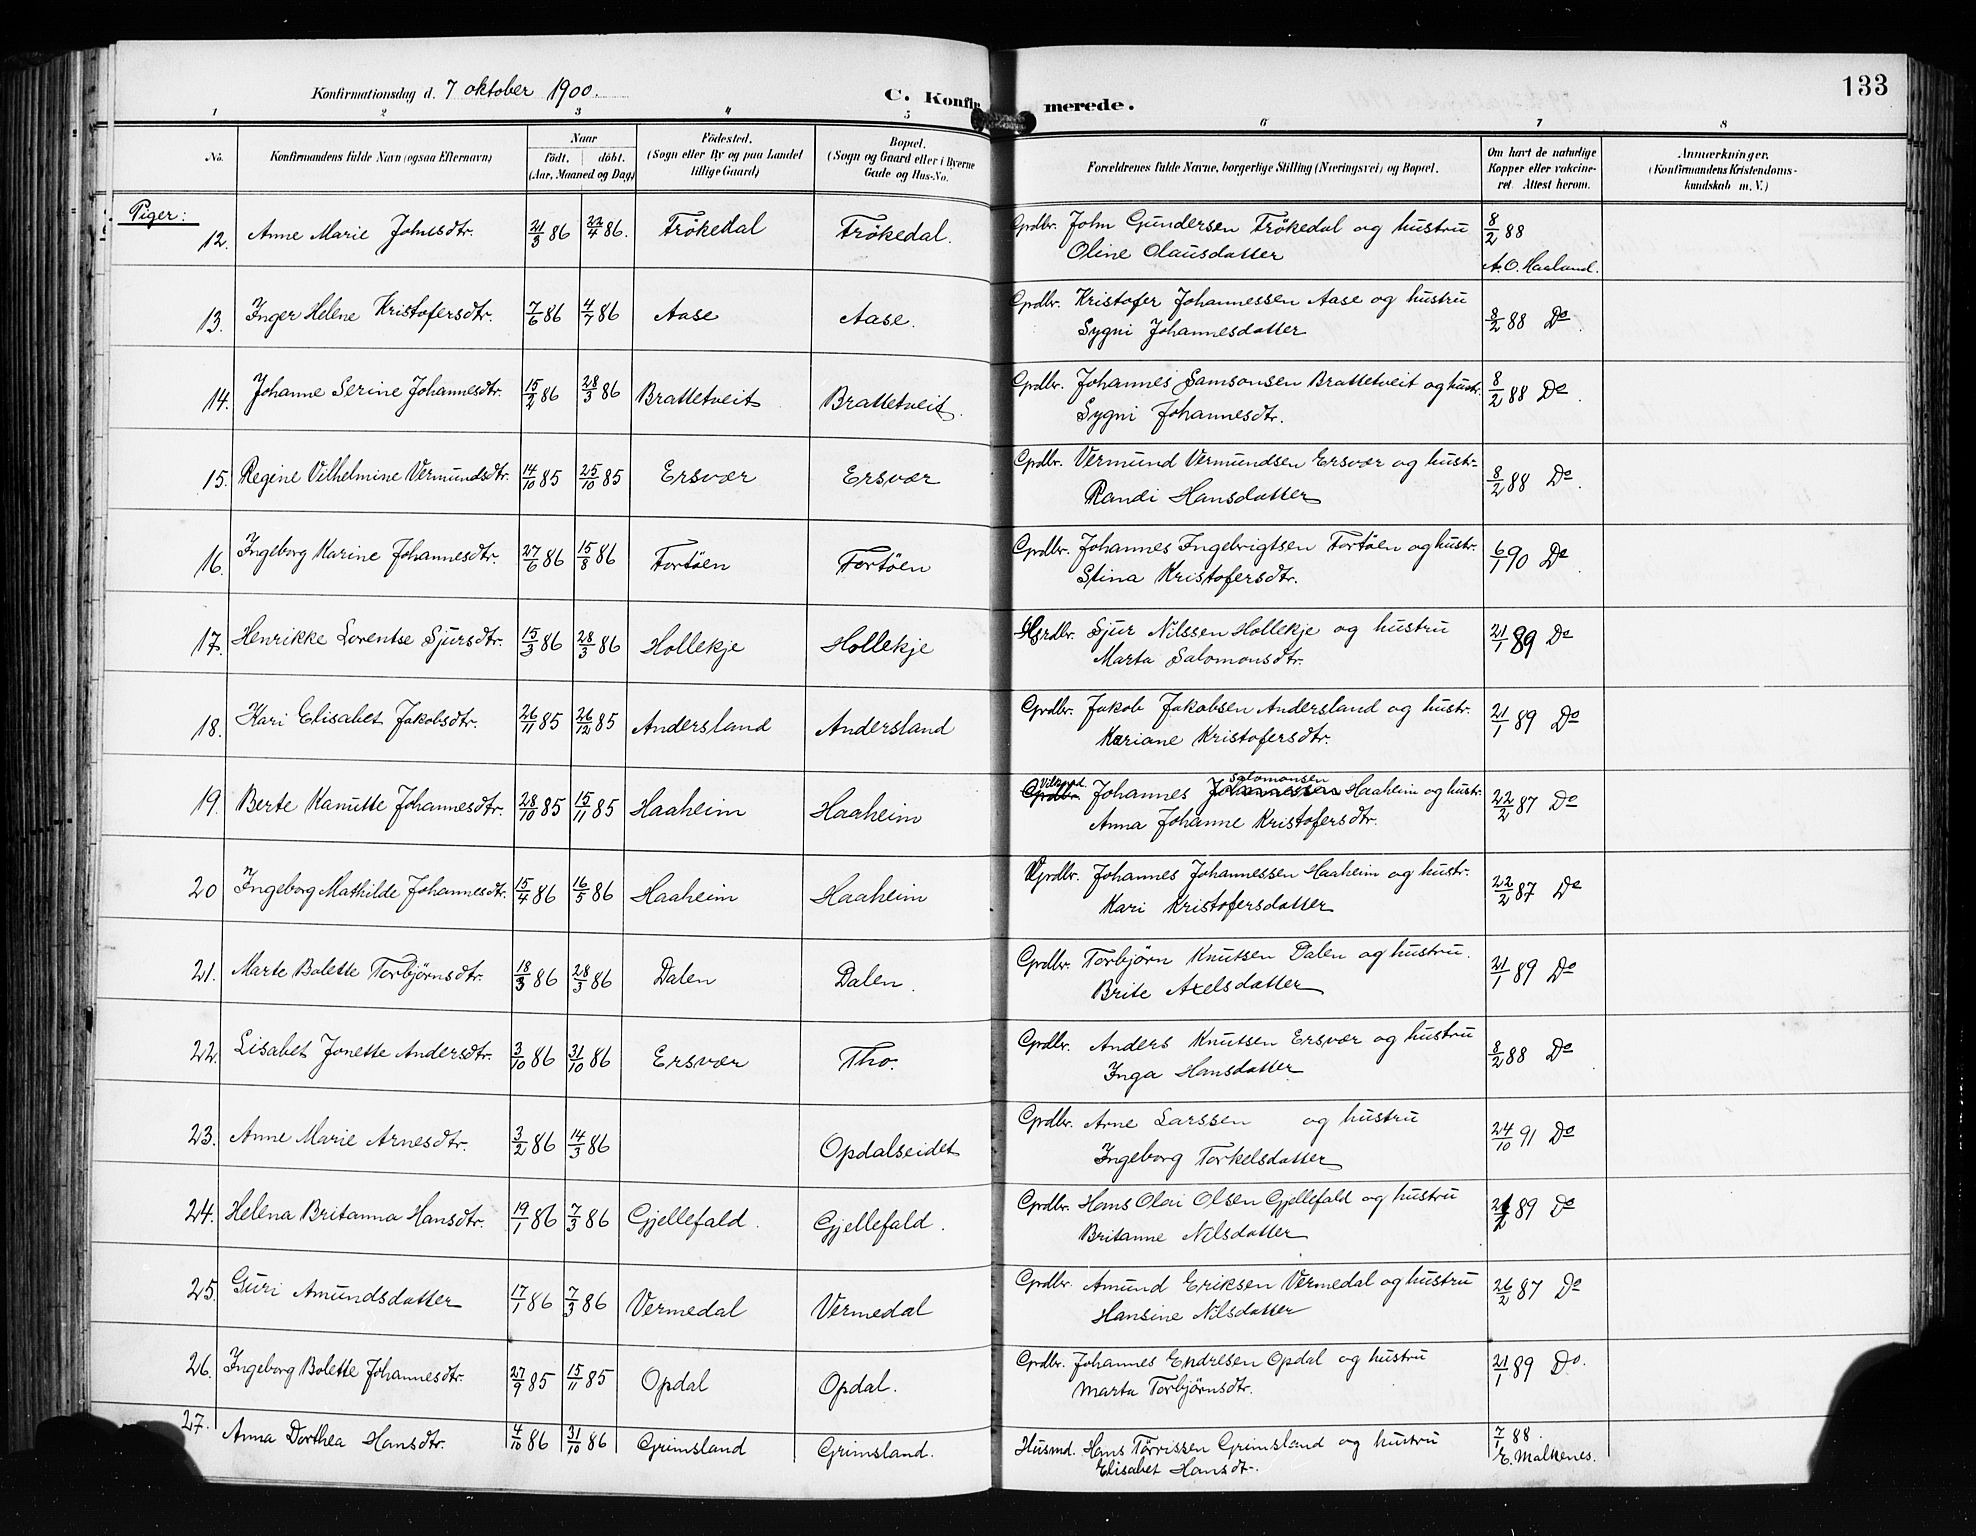 Konfirmationsdag d. 7 oktober 1900. C. Konfirmerede. 133
1 2 3 4 5 6 7 8
No. Konfirmandens fulde Navn (ogsaa Efternavn) Naar födt. döbt. (Aar, Maaned og Dag) Födested. (Sogn eller By og paa Landet tillige Gaard) Bopæl. (Sogn og Gaard eller i Byerne Gade og Hus-No. Forældrenes fulde Navne, borgerlige Stilling (Næringsvei) og Bopæl. Om havt de naturlige Kopper eller vakcineret. Attest herom. Anmærkninger. (Konfirmandens Kristendomskundskab m. V.)
Piger:
12. Anne Marie Johnsdtr. 21/3 86 22/4 86. Frökedal Frökedal. Grdbr. John Gundersen Frökedal og hustru 8/2 88
Oline Olausdatter A. O. Haaland.
13. Inger Helene Kristofersdtr. 7/6 86 4/7 86 Aase Aase. Grdbr. Kristofer Johannessen Aase og hustru 8/2 88 Do.
Sygni Johannesdatter
14. Johanne Serine Johannesdtr. 15/2 86 28/3 86 Brattetveit Brattetveit. Grdbr. Johannes Samsonsen Brattetveit og hustr. 8/2 88 Do.
Sygni Johannesdtr.
15. Regine Vilhelmine Vermundsdtr. 14/10 85 25/10 85 Ersvær Ersvær Grdbr. Vermund Vermundsen Ersvær og hustr. 8/2 88 Do.
Randi Hansdatter
16. Ingeborg Karine Johannesdtr. 27/6 86 15/8 86 Fortöen Fortöen Grdbr. Johannes Ingebrigtsen Fortöen og hustr. 6/1 90 Do.
Stina Kristofersdtr.
17. Henrikke Lorentse Sjursdtr. 15/3 86 28/3 86 Hollekje Hollekje Grdbr. Sjur Nilssen Hollekje og hustru 21/1 89 Do
Marta Salomonsdtr.
18. Kari Elisabet Jakobsdtr. 26/11 85 26/12 85 Andersland Andersland Grdbr. Jakob Jakobsen Andersland og hustr. 21/1 89 Do
Kariane Kristofersdtr.
19. Berte Kanutte Johannesdtr. 28/10 85 15/11 85 Haaheim Haaheim Grdbr. Johannes Johannessen Salomonsen Haaheim og hustr. 22/2 87 Do
Anna Johanne Kristofersdtr.
20 Ingeborg Mathilde Johannesdtr. 15/4 86 16/5 86 Haaheim Haaheim Grdbr. Johannes Johannessen Haaheim og hustr. 22/2 87 Do
Kari Kristofersdatter
21. Marte Bolette Torbjørnsdtr. 18/3 86 28/3 86 Dalen Dalen. Grdbr. Torbjörn Knutsen Dalen og hustru. 21/1 89 Do
Brite Axelsdatter
22. Lisabet Jonette Andersdtr. 3/10 86 31/10 86 Ersvær Tho. Grdbr. Anders Knutsen Ersvær og hustru 8/2 88 Do
Inga Hansdatter
23. Anne Marie Arnesdtr. 3/2 86 14/3 86 Opdalseidet Grdbr. Arne Larssen og hustru 24/10 91 Do
Ingeborg Torkelsdatter
24. Helena Britanna Hansdtr. 19/1 86 7/3 86 Gjellefald. Gjellefald. Grdbr. Hans Olai Olsen Gjellefald og hustru 89 Do
Britanne Nilsdatter
25. Guri Amundsdatter 17/1 86 7/3 86 Vermedal Vermedal Grdbr. Amund Eriksen Vermedal og hustru 26/2 87 Do
Hansine Nilsdatter
26. Ingeborg Bolette Johannesdtr. 27/9 85 15/11 85 Opdal Opdal. Grdbr. Johannes Endresen Opdal og hustru 21/1 89 Do.
Marta Torbjørnsdtr.
27. Anna Dorthea Hansdtr. 4/10 86 31/10 86 Grimsland Grimsland. Husmd. Hans Törrissen Grimsland og hustru 7/1 88.
Elisabet Hansdt. E. Malkenes.